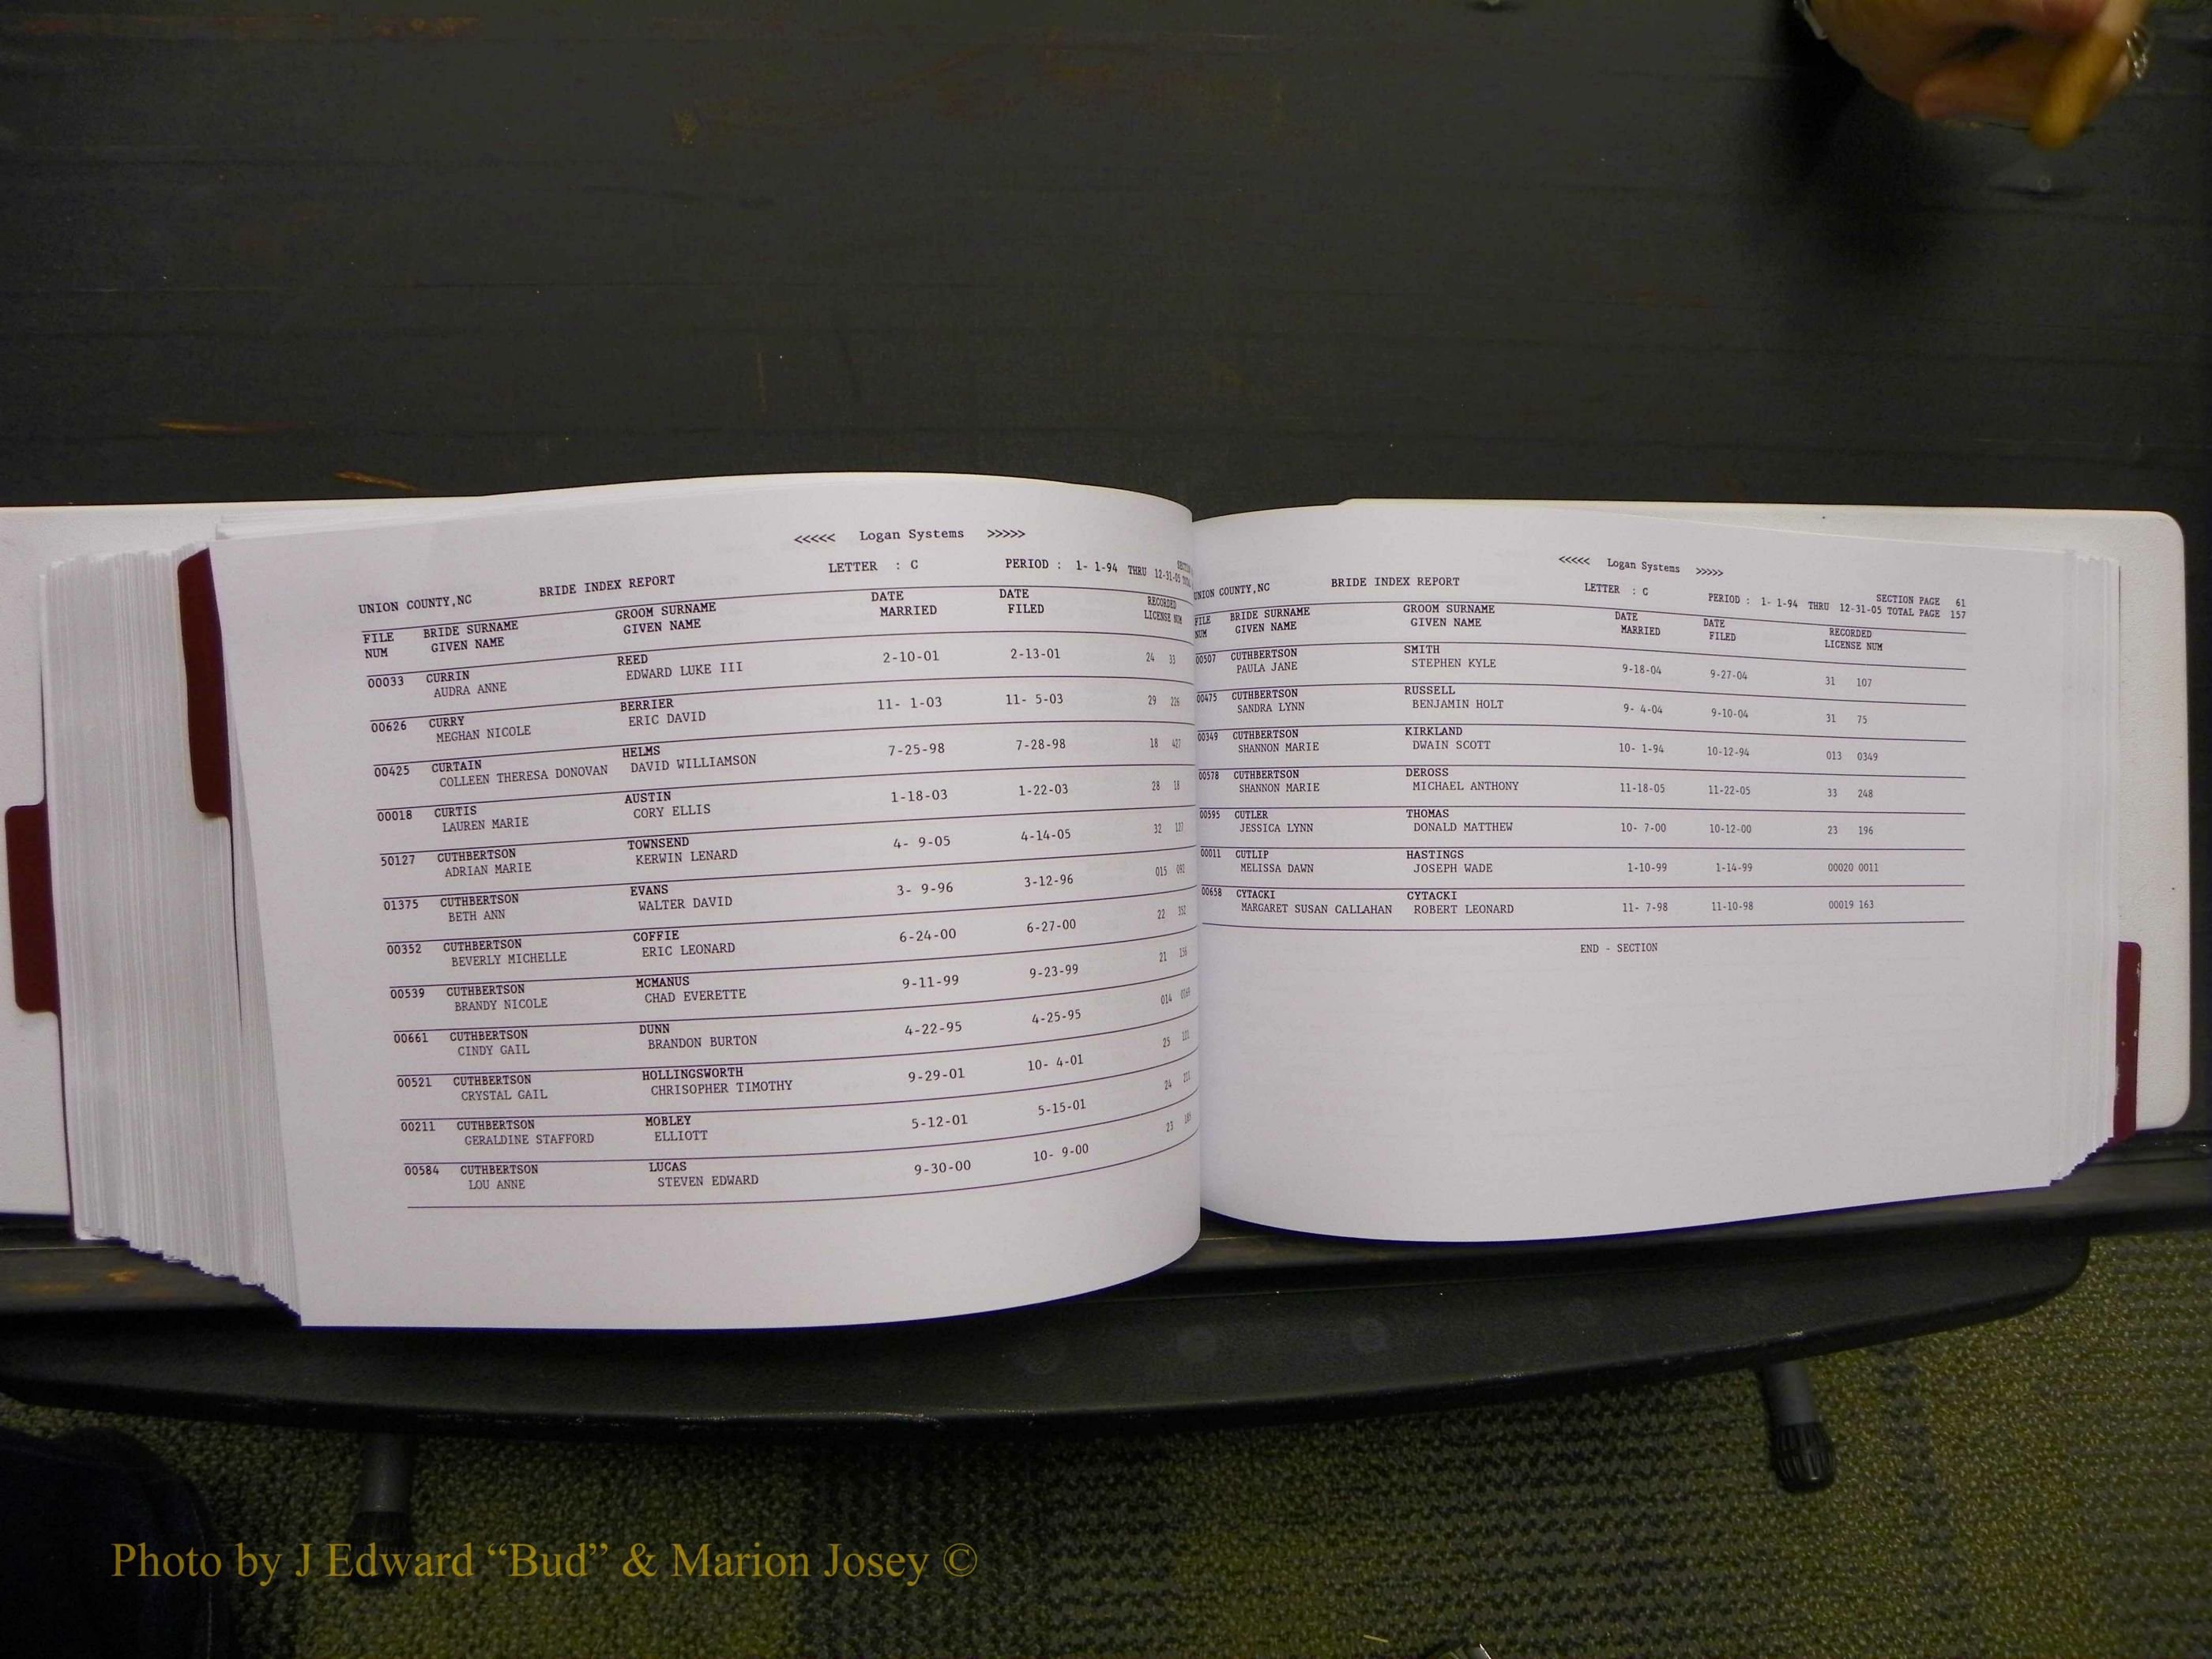 <<<<< Logan Systems >>>>>
UNION COUNTY,NC BRIDE INDEX REPORT LETTER : C PERIOD : 1- 1-94 THRU 12-31-05
FILE BRIDE SURNAME GROOM SURNAME DATE DATE RECORDED
NUM GIVEN NAME GIVEN NAME MARRIED FILED LICENSE NUM
00033 CURRIN REED 2-10-01 2-13-01 24 33
AUDRA ANNE EDWARD LUKE III
00626 CURRY BERRIER 11- 1-03 11- 5-03 29 226
MEGHAN NICOLE ERIC DAVID
00425 CURTAIN HELMS 7-25-98 7-28-98 18
COLLEEN THERESA DONOVAN DAVID WILLIAMSON
00018 CURTIS AUSTIN 1-18-03 1-22-03 28 18
LAUREN MARIE CORY ELLIS
50127 CUTHBERTSON TOWNSEND 4- 9-05 4-14-05 32
ADRIAN MARIE KERWIN LENARD
01375 CUTHBERTSON EVANS 3- 9-96 3-12-96 015
BETH ANN WALTER DAVID
00352 CUTHBERTSON COFFIE 6-24-00 6-27-00 22
BEVERLY MICHELLE ERIC LEONARD
00539 CUTHBERTSON MCMANUS 9-11-99 9-23-99 21
BRANDY NICOLE CHAD EVERETTE
00661 CUTHBERTSON DUNN 4-22-95 4-25-95 014
CINDY GAIL BRANDON BURTON
00521 CUTHBERTSON HOLLINGSWORTH 9-29-01 10- 4-01 25
CRYSTAL GAIL CHRISOPHER TIMOTHY
00211 CUTHBERTSON MOBLEY 5-12-01 5-15-01 24
GERALDINE STAFFORD ELLIOTT
00584 CUTHBERTSON LUCAS 9-30-00 10- 9-00 23
LOU ANNE STEVEN EDWARD
<<<<< Logan Systems >>>>>
SECTION PAGE 61
UNION COUNTY,NC BRIDE INDEX REPORT LETTER : C PERIOD : 1- 1-94 THRU 12-31-05 TOTAL PAGE 157
FILE BRIDE SURNAME GROOM SURNAME DATE DATE RECORDED
NUM GIVEN NAME GIVEN NAME MARRIED FILED LICENSE NUM
00507 CUTHBERTSON SMITH 9-18-04 9-27-04 31 107
PAULA JANE STEPHEN KYLE
00475 CUTHBERTSON RUSSELL 9- 4-04 9-10-04 31 75
SANDRA LYNN BENJAMIN HOLT
00349 CUTHBERTSON KIRKLAND 10- 1-94 10-12-94 013 0349
SHANNON MARIE DWAIN SCOTT
00578 CUTHBERTSON DEROSS 11-18-05 11-22-05 33 248
SHANNON MARIE MICHAEL ANTHONY
00595 CUTLER THOMAS 10- 7-00 10-12-00 23 196
JESSICA LYNN DONALD MATTHEW
00011 CUTLIP HASTINGS 1-10-99 1-14-99 00020 0011
MELISSA DAWN JOSEPH WADE
00658 CYTACKI CYTACKI 11- 7-98 11-10-98 00019 163
MARGARET SUSAN CALLAHAN ROBERT LEONARD
END - SECTION
Photo by J Edward “Bud” & Marion Josey ©